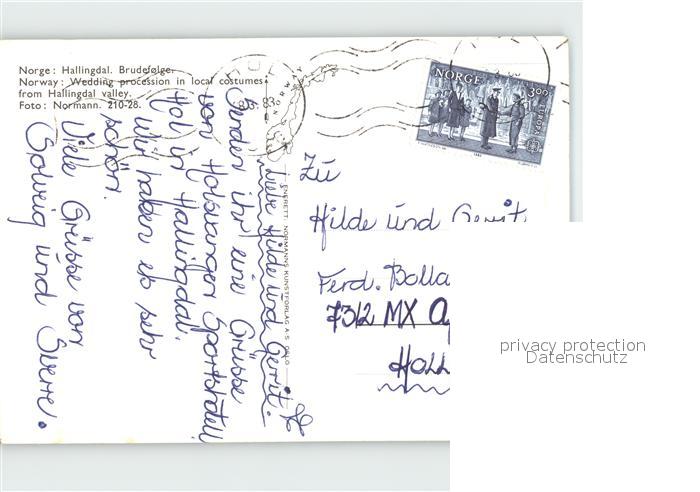 Norge: Hallingdal. Brudefølge.
Norway: Wedding procession in local costumes
from Hallingdal valley.
Foto: Normann. 210-28.
83
NORWAY
NORGE
3,00
EUROPA
ENERETT: NORMANNS KUNSTFORLAG A.S. OSLO
Liebe Hilde und Gerrit.
Senden ihr eine Grüsse
von Holsvanger Sportshotell
Hol in Hallingdal.
Wir haben es sehr
schön.
Viele Grüsse von
Solveig und Sverre.
Zu
Hilde und Gerrit
Ferd. Bolla
7312 MX A
HOLL
privacy protection
Datenschutz